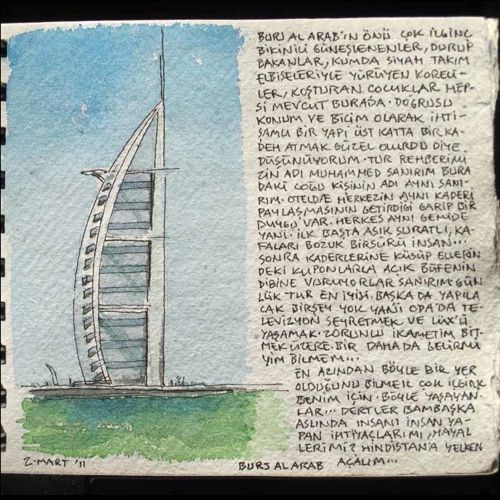 BURJ AL ARAB'IN ÖNÜ ÇOK İLGİNÇ
BİKİNİLİ GÜNEŞLENENLER, DURUP
BAKANLAR, KUMDA SİYAH TAKIM
ELBİSELERİYLE YÜRÜYEN KORELİ-
LER, KOŞTURAN ÇOCUKLAR HEP-
Sİ MEVCUT BURADA. DOĞRUSU
KONUM VE BİÇİM OLARAK İHTİ-
ŞAMLI BİR YAPI ÜST KATTA BİR KA-
DEH ATMAK GÜZEL OLURDU DİYE
DÜŞÜNÜYORUM. TUR REHBERİMİ
ZİN ADI MUHAMMED SANIRIM BURA
DAKİ ÇOĞU KİŞİNİN ADI AYNI SANI-
RIM. OTELDE HERKEZİN AYNI KADERİ
PAYLAŞMASININ GETİRDİĞİ GARİP BİR
DUYGU VAR. HERKES AYNI GEMİDE
YANİ. İLK BAŞTA ASIK SURATLI, KA-
FALARI BOZUK BİRSÜRÜ İNSAN...
SONRA KADERLERİNE KÜSÜP ELLERİN
DEKİ KUPONLARLA AÇIK BÜFENİN
DİBİNE VURUYORLAR SANIRIM. GÜN
LÜK TUR EN İYİSİ. BAŞKA DA YAPILA
CAK BİRŞEY YOK YANİ ODA'DA TE
LEVİZYON SEYRETMEK VE LÜX'Ü
YAŞAMAK. ZORUNLU İKAMETİM BİT-
MEK ÜZERE. BİR DAHA DA GELİRMİ
YİM BİLMEM...
EN AZINDAN BÖYLE BİR YER
OLDUĞUNU BİLMEK ÇOK İLGİNÇ
BENİM İÇİN. BÖYLE YAŞAYAN-
LAR... DERTLER BAMBAŞKA
ASLINDA İNSANI İNSAN YA-
PAN İHTİYAÇLARIMI, HAYAL
LERİMİZ HİNDİSTAN'A YELKEN
AÇALIM...
2. MART '11
BURJ AL ARAB